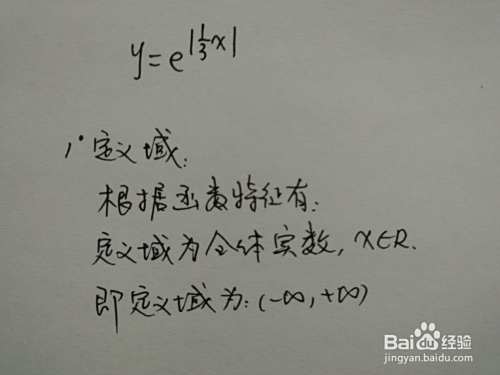 y=e^{|\frac{1}{3}x|}
1° 定义域:
根据函数特征有:
定义域为全体实数, x∈R.
即定义域为:(-∞,+∞)
Baidu 经验
jingyan.baidu.com